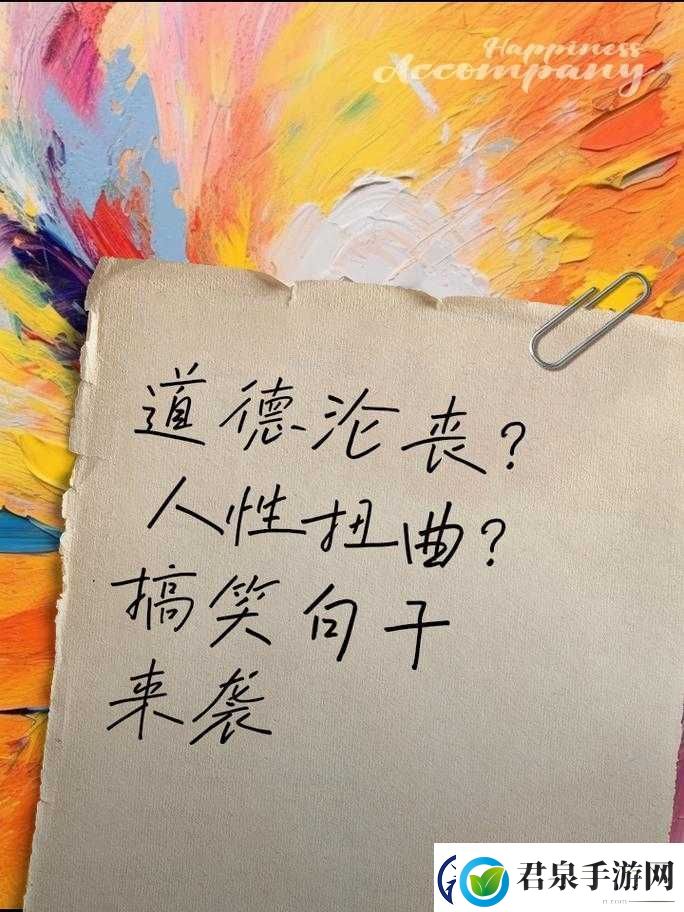 Happiness
Accompany
道德沦丧?
人性扭曲?
搞笑句子
来袭
君泉手游网